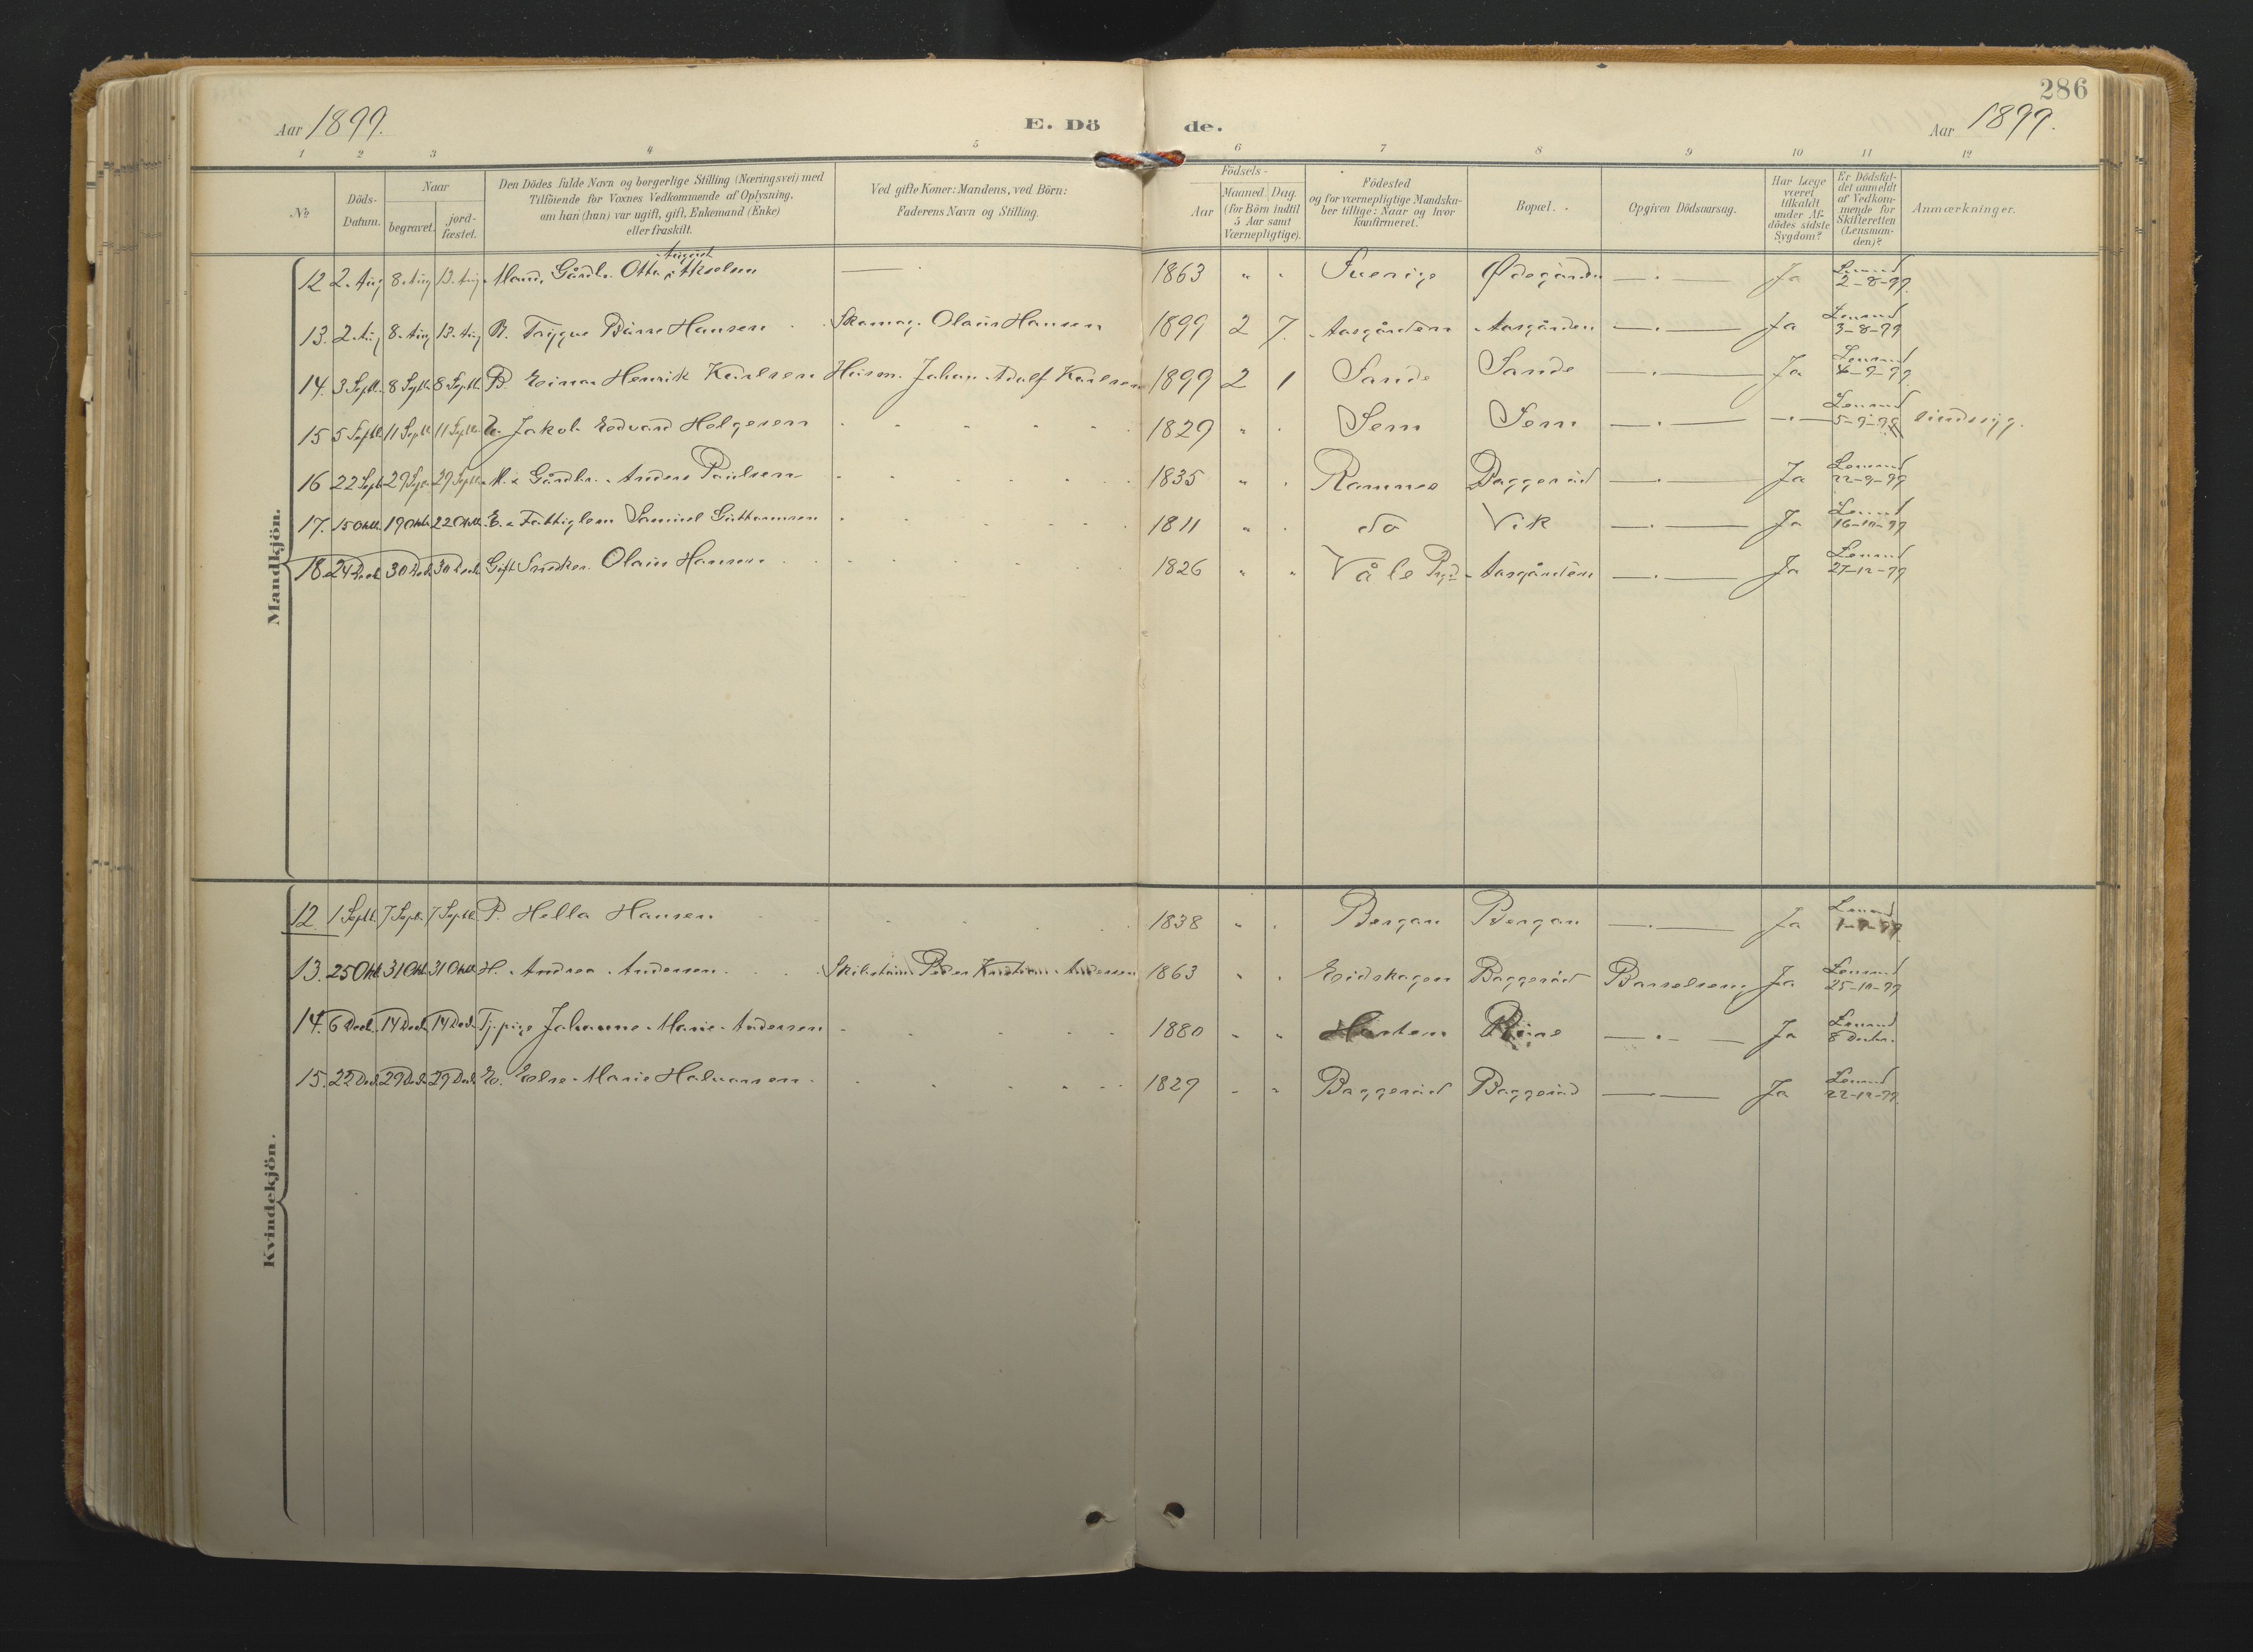 286
Aar 1899.
E. Dö de.
Aar 1899.
1 2 3 4 5 6 7 8 9 10 11 12
№
Döds-Datum.
Naar
begravet.
jord-fæstet.
Den Dödes fulde Navn og borgerlige Stilling (Næringsvei) med
Tilföiende for Voxnes Vedkommende af Oplysning,
om han (hun) var ugift, gift, Enkemand (Enke)
eller fraskilt.
Ved gifte Koner: Mandens, ved Börn:
Faderens Navn og Stilling.
Födsels-
Aar
Maaned. Dag.
(for Börn indtil
5 Aar samt
Værnepligtige).
Födested
og for værnepligtige Mandska-
ber tillige: Naar og hvor
konfirmeret.
Bopæl.
Opgiven Dödsaarsag.
Har Læge
været
tilkaldt
under Af-
dödes sidste
Sygdom?
Er Dödsfal-
det anmeldt
af Vedkom-
mende for
Skifteretten
(Lensman-
den)?
Anmærkninger.
Mandkjön.
August
12 2. Aug 8. Aug 13. Aug. Mand, Gårdbr. Otto Akselsen — 1863 " " Sverige Ødegården — . — Ja Lensmd 2-8-99.
13. 2. Aug 8. Aug 13. Aug B. Trygve Hansen Skomag. Olaus Hansen 1899 2 7. Aasgården Aasgården — . — Ja Lensmd 3-8-99
14. 3 Septb. 8 Septb. 8 Septb. B. Einar Henrik Karlsen Husm. Johan Adolf Karlsen 1899 2 1 Sande Sande — . — Ja Lensmd 9-99.
15 5 Septb. 11 Septb 11 Septb. Jakob Edvard Helgesen 1829 " " Sem Sem — . — — . — Lensmd 5-9-99 sindssyg.
16 22 Septb. 29 Septb. 29 Septb. Gårdbr. Anders Paulsen 1835 " " Ramnes Baggerød — . — Ja Lensmd 22-9-99
17. 15 Oktb. 19 Oktb. 22 Oktb. E. Fattiglem Samuel Guttormsen 1811 " " do Vik — . — Ja Lensmd 16-10-99
18. 24 Decb. 30 Decb. 30 Decb. Gift Snedker Olaus Hansen 1826 " " Våle Aasgården — . — Ja Lensmd 27-12-99
Kvindekjön.
12. 1 Septb. 7 Septb. 7 Septb. P. Hella Hansen 1838 " " Bergan Bergan — . — Ja Lensmd 1-9-99.
13. 25 Oktb. 31 Oktb. 31 Oktb. H. Andrea Andersen Peder Kristian Andersen 1863 " " Eidskogen Baggerød Barselseng Ja Lensmd 25-10-99
14. 6 Decb. 14 Decb. 14 Decb. Tj.pige Johanne Marie Andersen 1880 " " — . — Ja Lensmd 8 Decbr.
15. 22 Decb. 29 Decb. 29 Decb. Else Marie Halvorsen 1829 " " Baggerød Baggerød — . — Ja Lensmd 22-12-99.